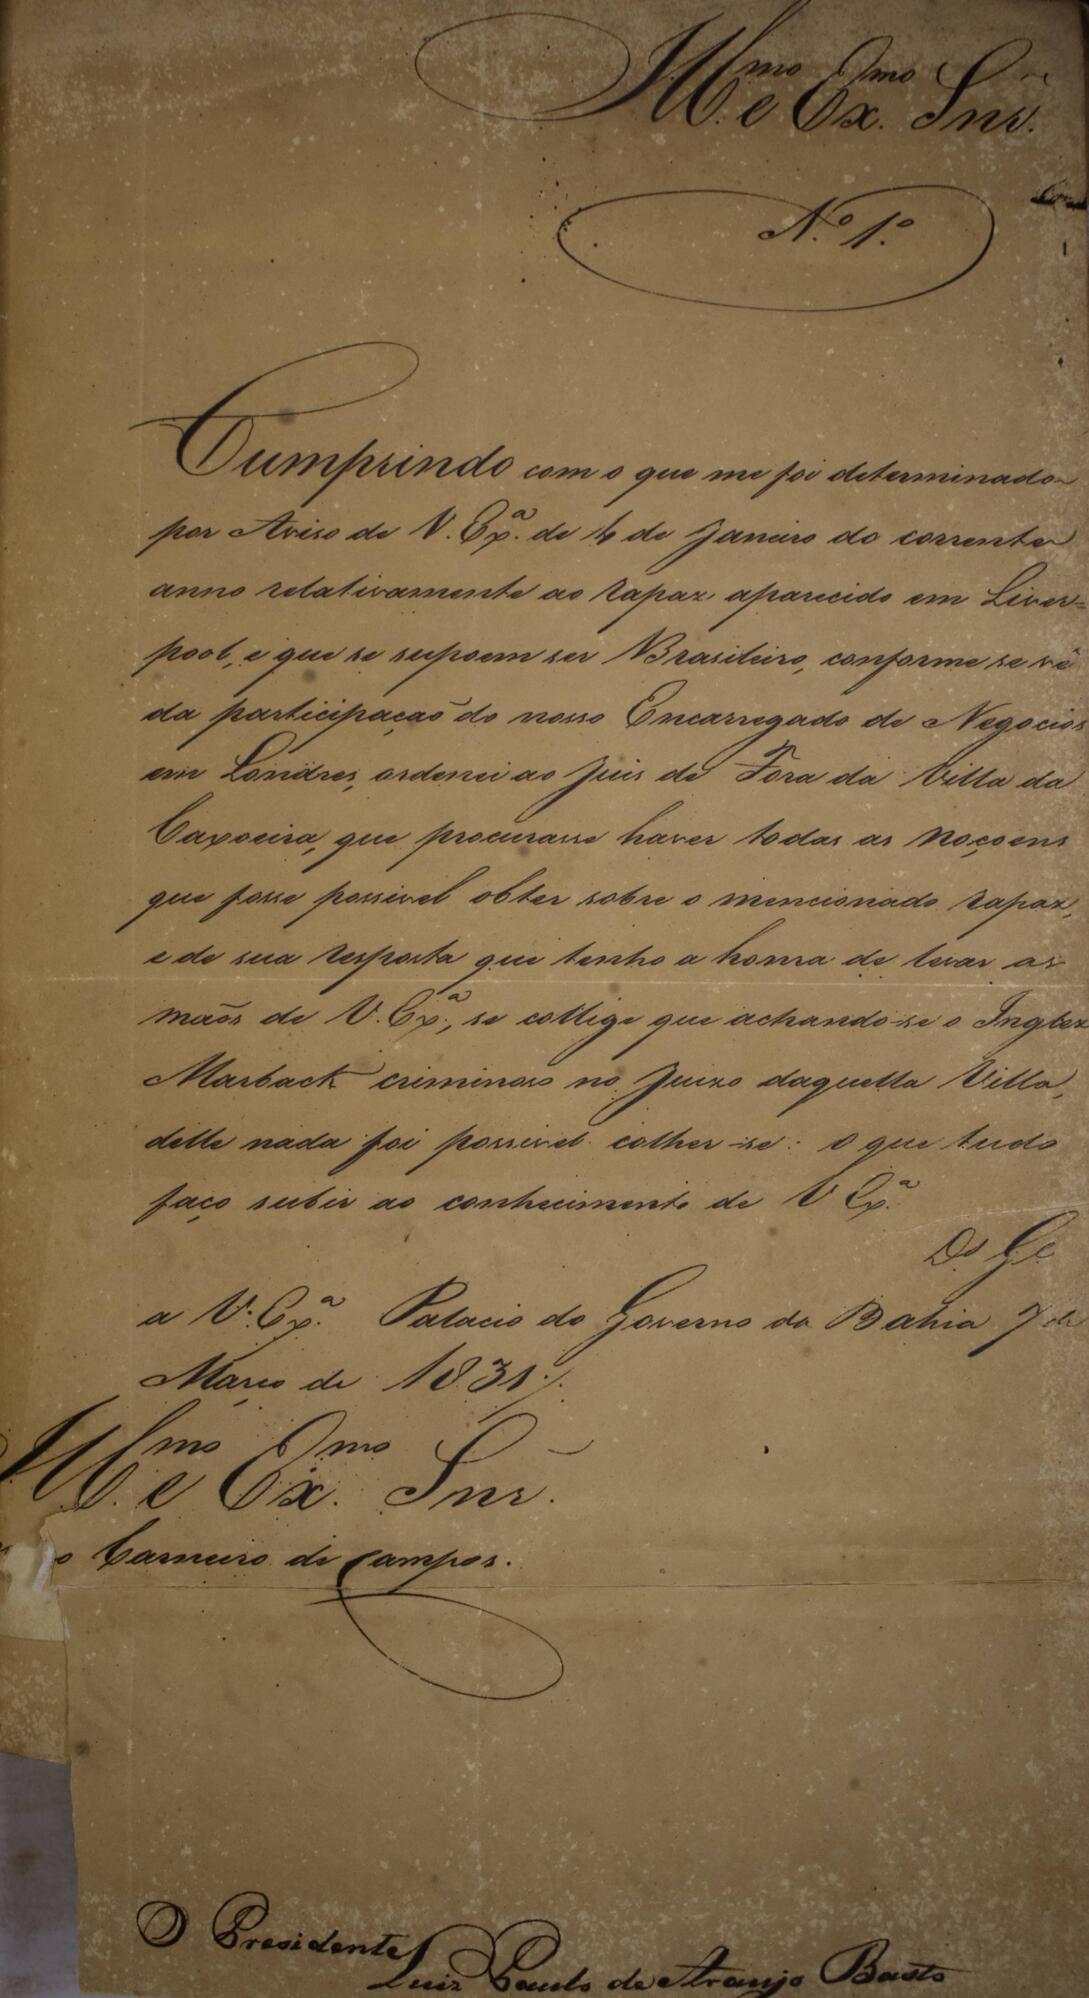 Illmo e Exmo Snr.
N.o 1.o
Cumprindo com o que me foi determinado
por Aviso de V. Exa. de 4 de Janeiro do corrente
anno relativamente ao rapaz aparecido em Liver=
pool, e que se supoem ser Brasileiro, conforme se vê
da participaçaõ do nosso Encarregado de Negocios
em Londres, ordenei ao Juis de Fora da Villa da
Caxoeira, que procurasse haver todas as noçoens
que fosse possivel obter sobre o mencionado rapaz,
e de sua resposta que tenho a honra de levar as
maõs de V. Exa., se collige que achando-se o Inglez
Marback criminoso no Juizo daquella Villa,
delle nada foi possivel colher-se: o que tudo
faço subir ao conhecimento de V Exa.
Ds Ge
a V. Exa. Palacio do Governo da Bahia 7 de
Março de 1831.
Illmo e Exmo Snr.
Carneiro de Campos.
O Presidente
Luiz Paulo de Araujo Basto